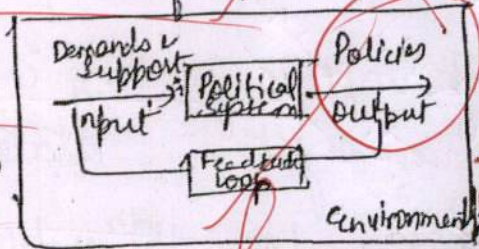 Demands &
Support
Input
Political
System
Policies
Output
Feedback
loop
environment